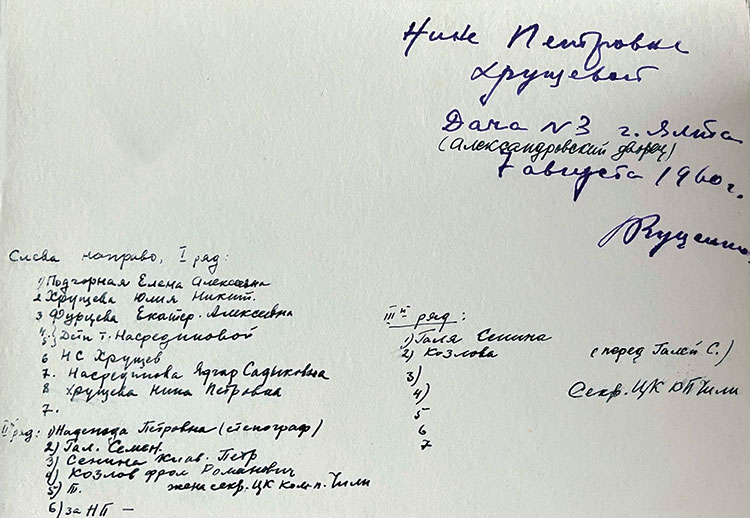 Нине Петровне
Хрущевой
Дача №3 г. Ялта
(Александровский дворец)
7 августа 1960 г.
Слева направо, I ряд:
1) Подгорная Елена Алексеевна
2 Хрущева Юлия Никит.
3 Фурцева Екатер. Алексеевна
4.
5. } Дети т. Насрединовой
6 НС Хрущев
7. Насрединова Ядгар Садыковна
8 Хрущева Нина Петровна
7.
II ряд: 1) Надежда Петровна (стенограф)
2) Гал. Семен.
3) Сенина Клав. Петр
4) Козлов Фрол Романович
5) Т. жена секр. ЦК комп. Чили
6) за НП —
III й ряд:
1) Галя Сенина
2) Козлова (перед Галей С.)
3)
4) Секр. ЦК КП Чили
5
6
7